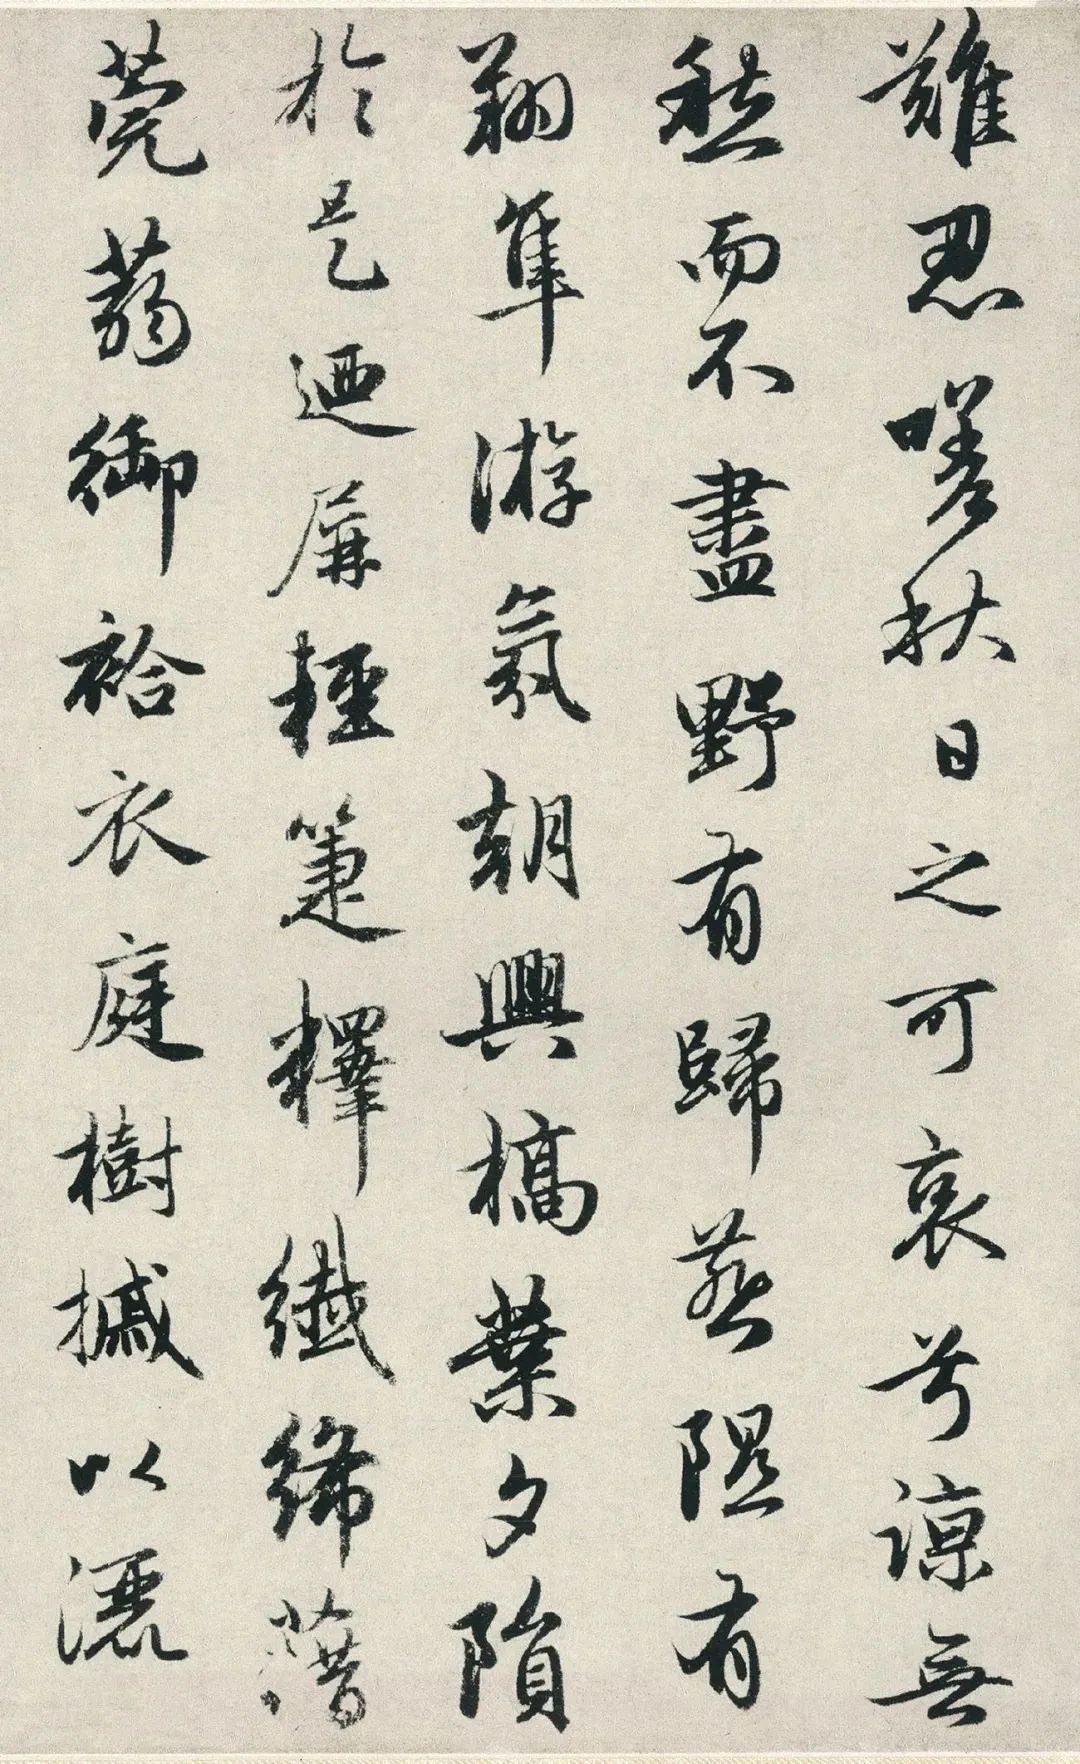 難忍嗟秋日之可哀兮諒無
愁而不盡野有歸燕隰有
翔隼游氛朝興槁葉夕隕
於是迺屏輕箑釋纖絺藉
莞蒻御袷衣庭樹摵以灑